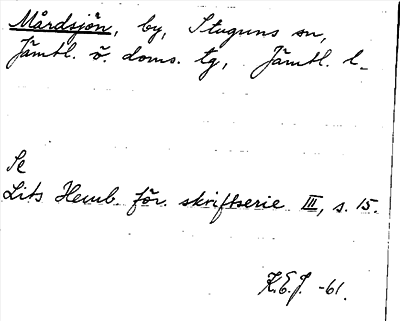 Mårdsjön, by, Stuguns sn,
Jämtl. ö. doms. tg, Jämtl. l.
Se
Lits Hemb. för. skriftserie III, s. 15.
K.E.J. -61.